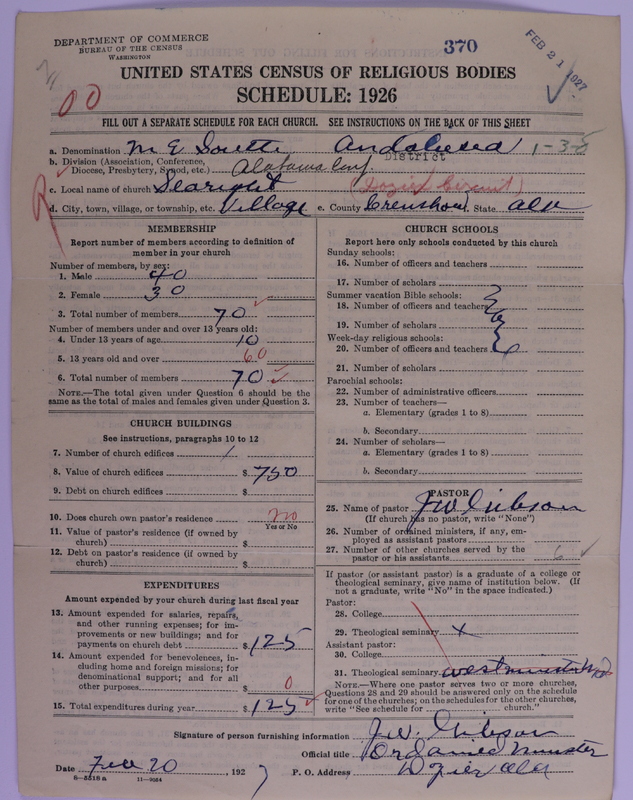 DEPARTMENT OF COMMERCE
BUREAU OF THE CENSUS
WASHINGTON
370
FEB 21 1927
UNITED STATES CENSUS OF RELIGIOUS BODIES
SCHEDULE: 1926
00
FILL OUT A SEPARATE SCHEDULE FOR EACH CHURCH. SEE INSTRUCTIONS ON THE BACK OF THIS SHEET
a. Denomination M E South Andalusia 1-35
b. Division (Association, Conference, Diocese, Presbytery, Synod, etc.) Alabama Conf. District
c. Local name of church Searight (Dozier Circuit)
d. City, town, village, or township, etc. Village e. County Crenshaw State Ala
MEMBERSHIP
Report number of members according to definition of
member in your church
Number of members, by sex:
1. Male 40
2. Female 30
3. Total number of members 70
Number of members under and over 13 years old:
4. Under 13 years of age 10
5. 13 years old and over 60
6. Total number of members 70
NOTE.—The total given under Question 6 should be
same as the total of males and females given under Question 3.
CHURCH BUILDINGS
See instructions, paragraphs 10 to 12
7. Number of church edifices 1
8. Value of church edifices $ 750
9. Debt on church edifices $
10. Does church own pastor's residence No
Yes or No
11. Value of pastor's residence (if owned by
church) $
12. Debt on pastor's residence (if owned by
church) $
EXPENDITURES
Amount expended by your church during last fiscal year
13. Amount expended for salaries, repairs,
and other running expenses; for im-
provements or new buildings; and for
payments on church debt $ 125
14. Amount expended for benevolences, in-
cluding home and foreign missions; for
denominational support; and for all
other purposes $ 0
15. Total expenditures during year $ 125
CHURCH SCHOOLS
Report here only schools conducted by this church
Sunday schools:
16. Number of officers and teachers
17. Number of scholars
Summer vacation Bible schools:
18. Number of officers and teachers
19. Number of scholars
Week-day religious schools:
20. Number of officers and teachers
21. Number of scholars
Parochial schools:
22. Number of administrative officers
23. Number of teachers—
a. Elementary (grades 1 to 8)
b. Secondary
24. Number of scholars—
a. Elementary (grades 1 to 8)
b. Secondary
PASTOR
25. Name of pastor J W Gibson
(If church has no pastor, write "None")
26. Number of ordained ministers, if any, em-
ployed as assistant pastors
27. Number of other churches served by the
pastor or his assistants 6
If pastor (or assistant pastor) is a graduate of a college or
theological seminary, give name of institution below. (If
not a graduate, write "No" in the space indicated.)
Pastor:
28. College
29. Theological seminary x
Assistant pastor:
30. College
31. Theological seminary
NOTE.—Where one pastor serves two or more churches,
Questions 28 and 29 should be answered only on the schedule
for one of the churches; on the schedules for the other churches,
write "See schedule for church."
Signature of person furnishing information J.W. Gibson
Official title Ordained Minister
Date Feb 20, 1927 P. O. Address Dozier Ala
8—5518 a 11—9054